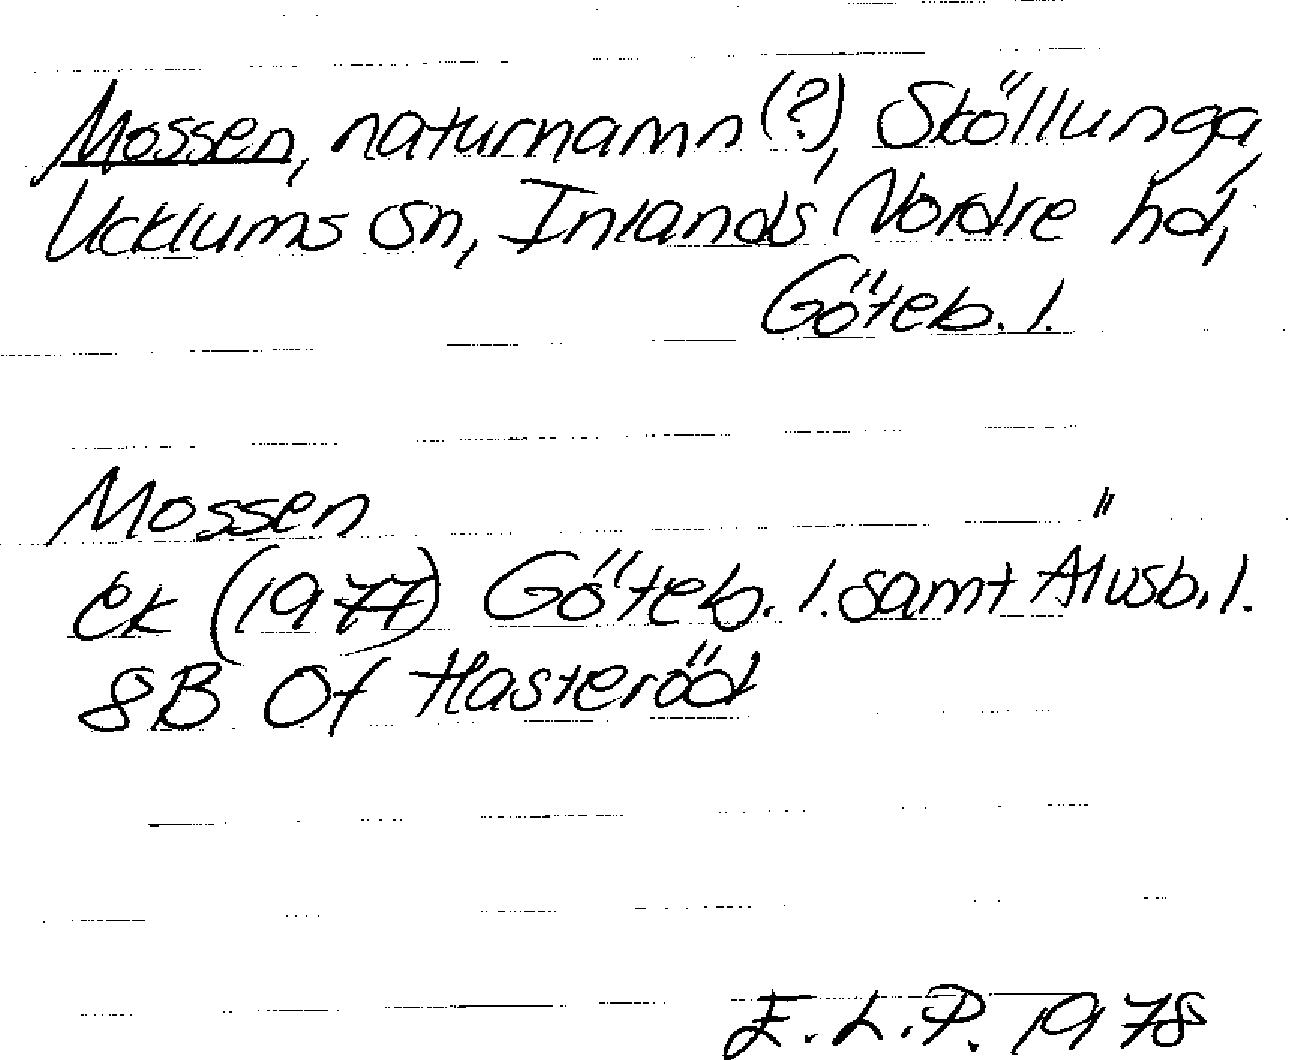 Mossen, naturnamn(?), Sköllunga,
Ucklums sn, Inlands Nordre hd,
Göteb. l.
Mossen
Ek (1977) Göteb. l. samt Älvsb. l.
8B 0f Hasteröd
E.L.P. 1978